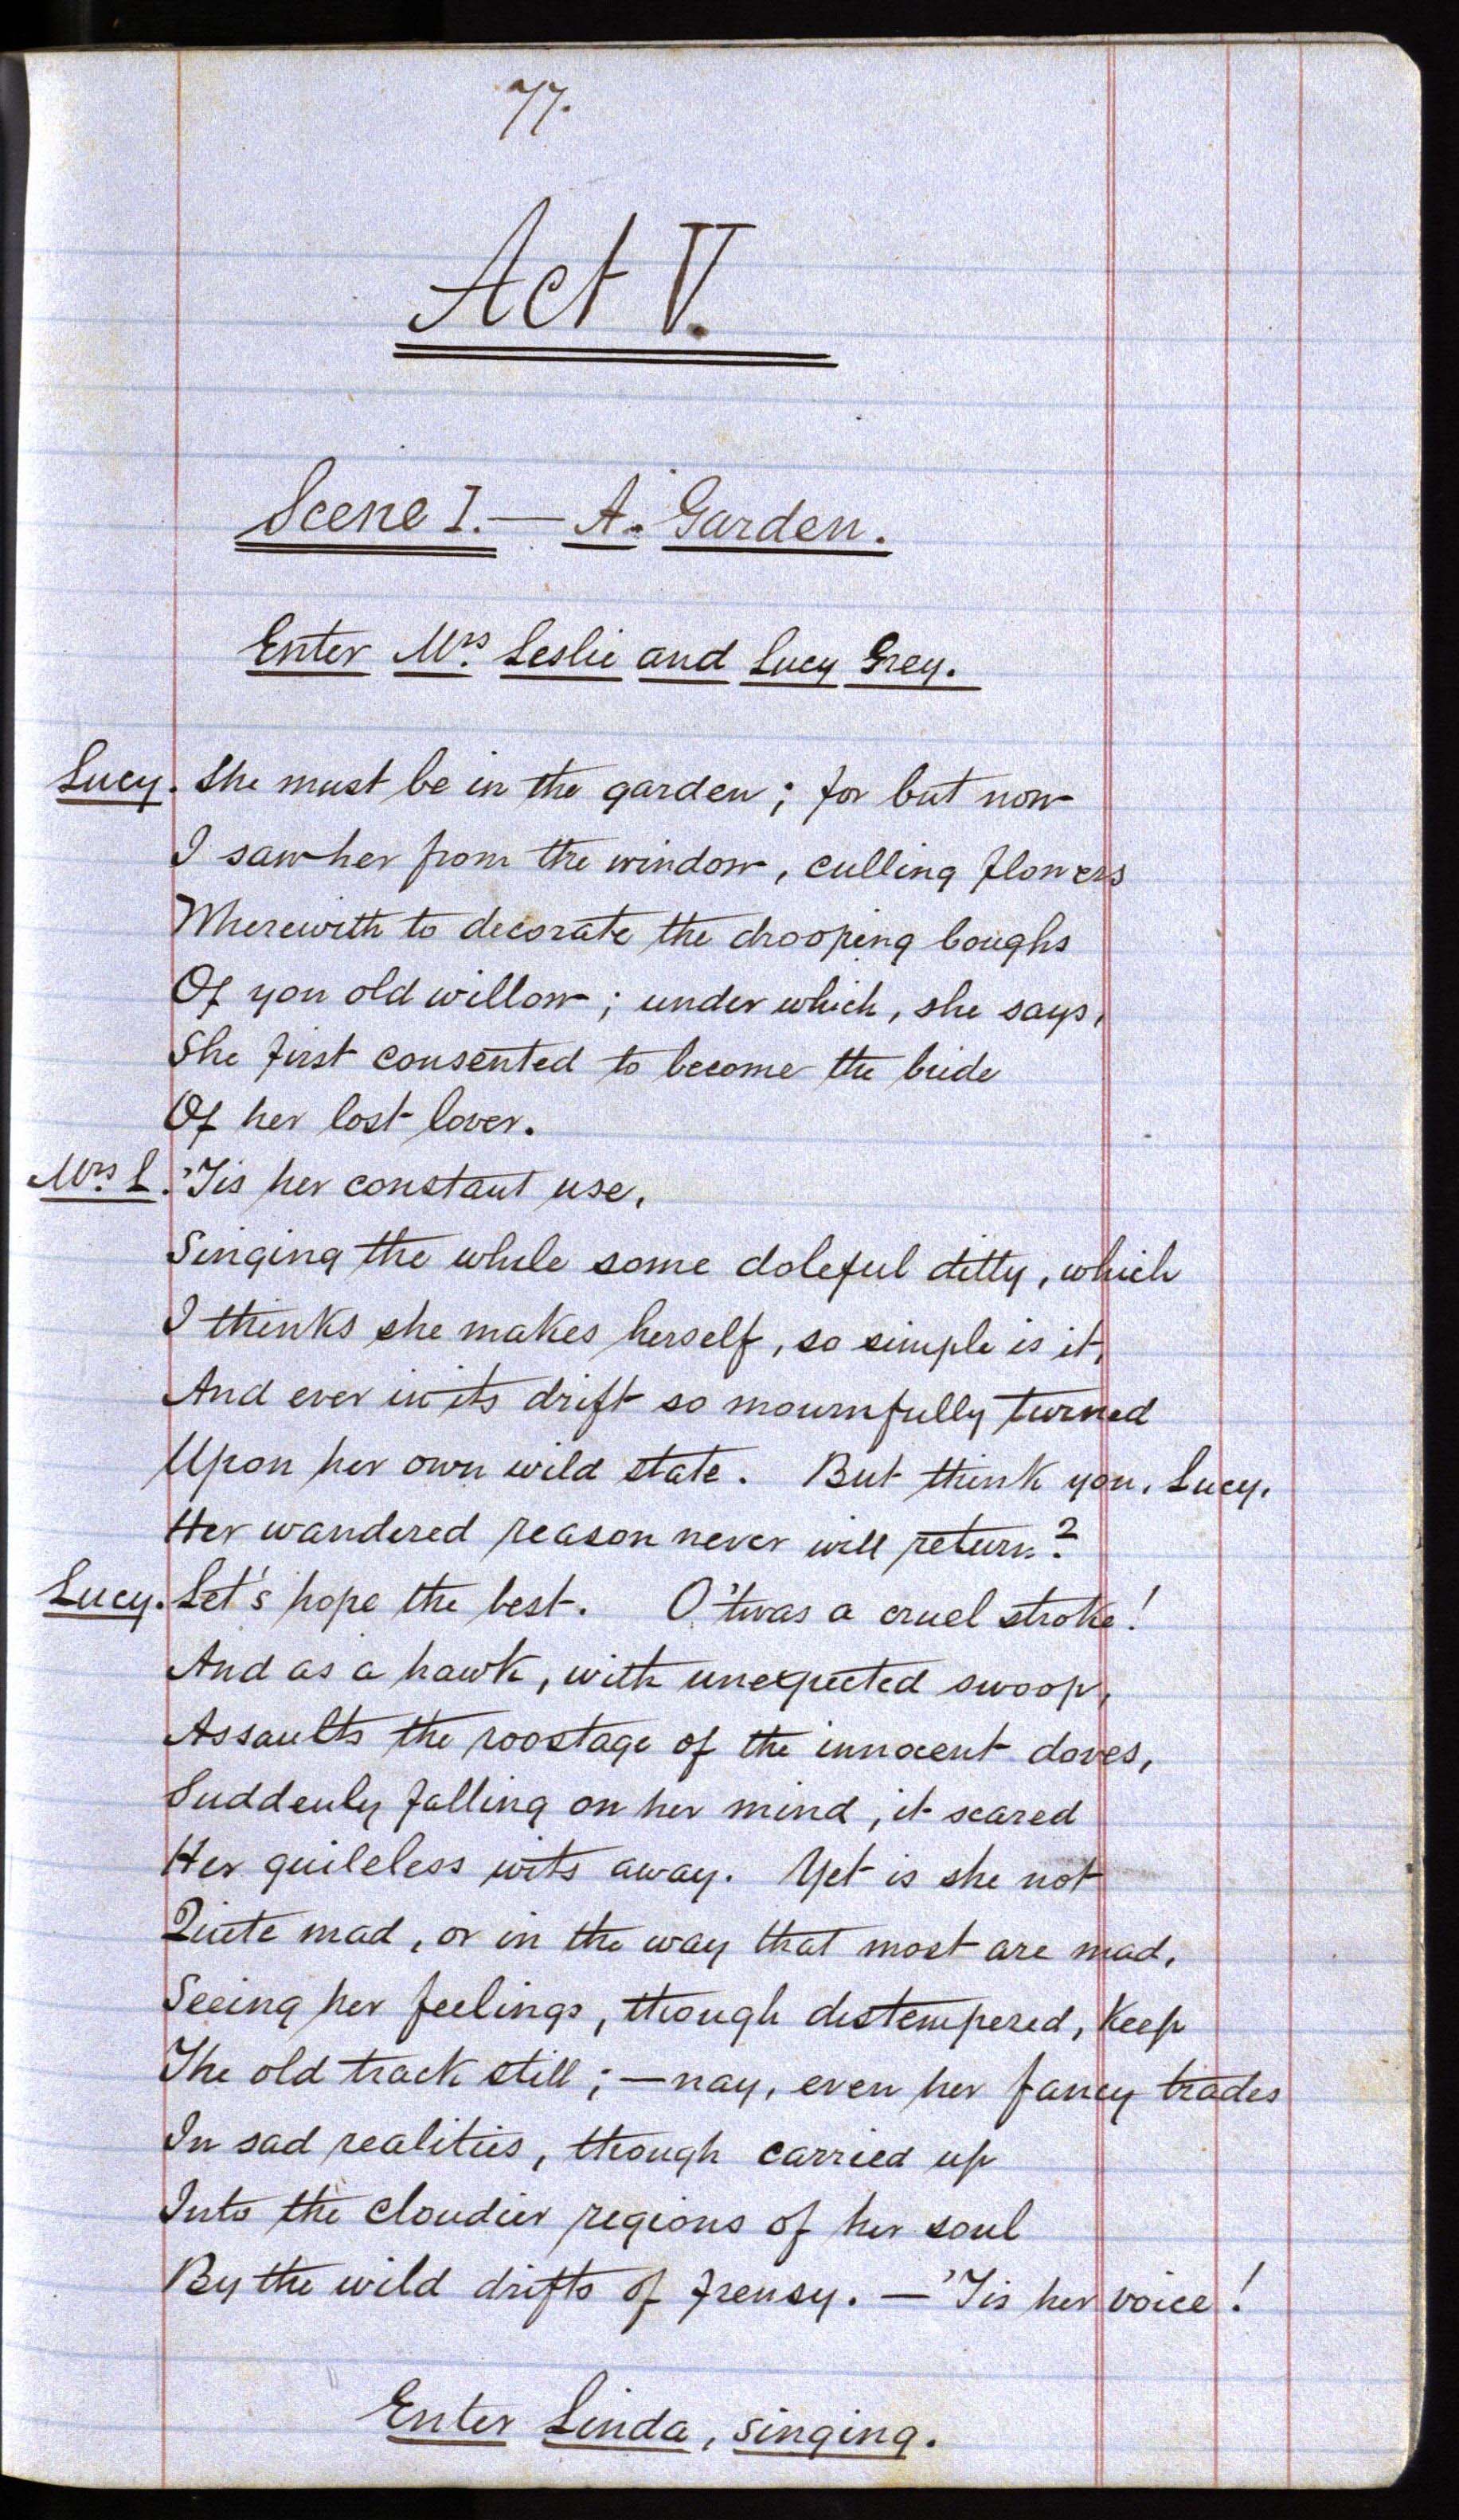 77.
Act V.
Scene I. — A. Garden.
Enter Mrs. Leslie and Lucy Grey.
Lucy. She must be in the garden; for but now
I saw her from the window, culling flowers
Wherewith to decorate the drooping boughs
Of yon old willow; under which, she says,
She first consented to become the bride
Of her lost lover.
Mrs. L. 'Tis her constant use,
Singing the while some doleful ditty, which
I thinks she makes herself, so simple is it,
And ever in its drift so mournfully turned
Upon her own wild state. But think you, Lucy,
Her wandered reason never will return?
Lucy. Let's hope the best. O 'twas a cruel stroke!
And as a hawk, with unexpected swoop,
Assaults the roostage of the innocent doves,
Suddenly falling on her mind, it scared
Her guileless wits away. Yet is she not
Quite mad, or in the way that most are mad,
Seeing her feelings, though distempered, keep
The old track still; — nay, even her fancy trades
In sad realities, though carried up
Into the cloudier regions of her soul
By the wild drifts of frensy. — 'Tis her voice!
Enter Linda, singing.